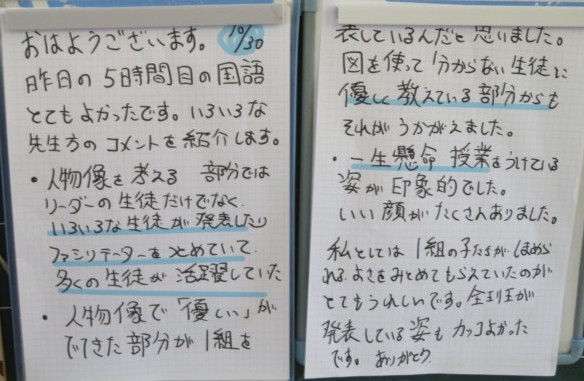 おはようございます。 10/30
昨日の5時間目の国語
とてもよかったです。いろいろな
先生方のコメントを紹介します。
・人物像を考える 部分では
リーダーの生徒だけでなく、
いろいろな生徒が発表したり
ファシリテーターをつとめていて、
多くの生徒が活躍していた
・人物像で「優しい」が
でてきた部分が1組を
表しているんだと思いました。
図を使って分からない生徒に
優しく教えている部分からも
それがうかがえました。
・一生懸命 授業をうけている
姿が印象的でした。
いい顔がたくさんありました。
私としては1組の子たちがほめら
れる、よさをみとめてもらえていたのが
とてもうれしいです。全王王が
発表している姿もカッコよかった
です。ありがとう